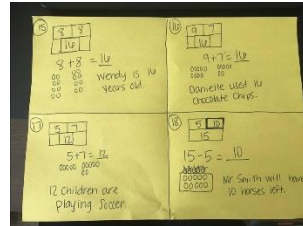 15
8 8
16
8 + 8 = 16
Wendy is 16
years old.
16
9 7
16
9 + 7 = 16
Danielle used 16
chocolate chips.
17
5 7
12
5 + 7 = 12
12 children are
playing soccer.
18
5 10
15
15 - 5 = 10
Mr. Smith will have
10 horses left.